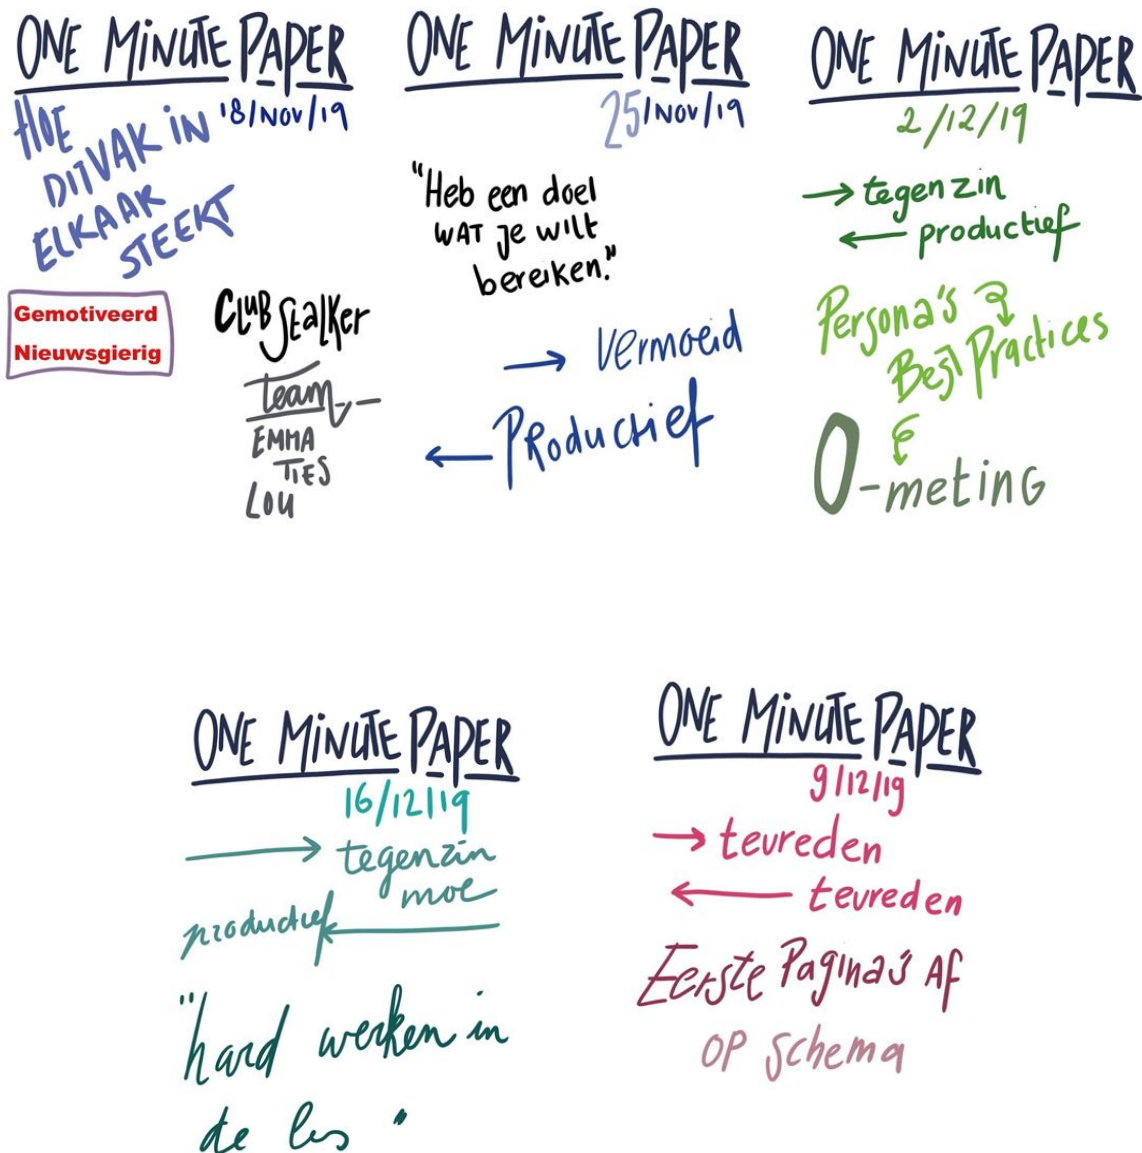 ONE MINUTE PAPER
18/NOV/19
HOE
DIT VAK IN
ELKAAR
STEEKT
Gemotiveerd
Nieuwsgierig
CLUB STalKer
Team
EMMA
TIES
LOU
ONE MINUTE PAPER
25/NOV/19
"Heb een doel
WAT je wilt
bereiken."
→ Vermoeid
← PRoductief
ONE MINUTE PAPER
2/12/19
→ tegenzin
← productief
Persona's
Best Practices
0-meting
ONE MINUTE PAPER
16/12/19
→ tegenzin
moe
productief ←
"hard werken in
de les"
ONE MINUTE PAPER
9/12/19
→ tevreden
← tevreden
Eerste Pagina's AF
OP Schema